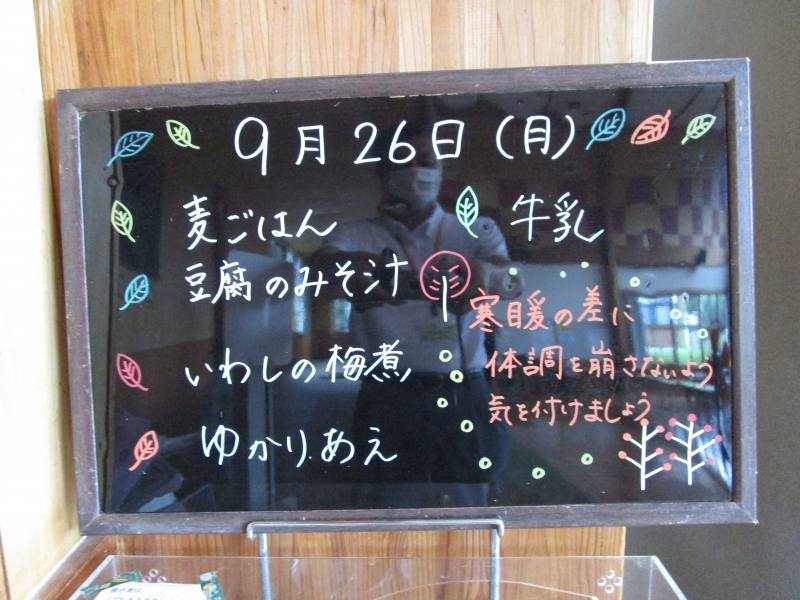 9月26日(月)
麦ごはん
豆腐のみそ汁
いわしの梅煮
ゆかりあえ
牛乳
寒暖の差に
体調を崩さないよう
気を付けましょう